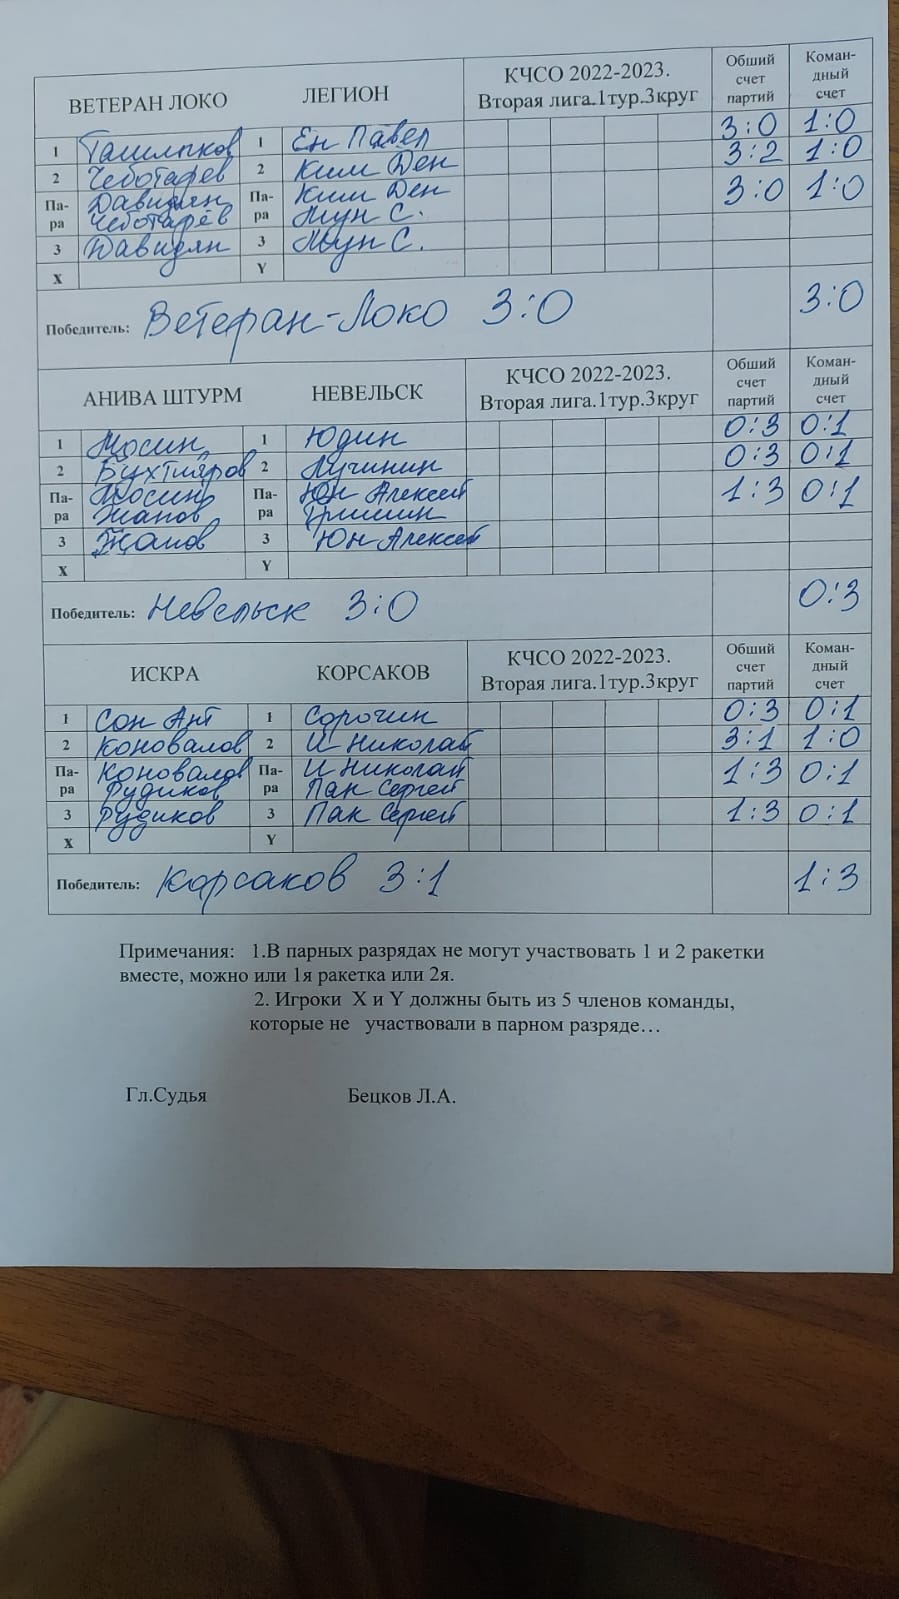 ВЕТЕРАН ЛОКО ЛЕГИОН КЧСО 2022-2023. Вторая лига.1тур.3круг Обший счет партий Коман-дный счет
1 1 Ен Павел 3:0 1:0
2 Чеботарёв 2 Ким Ден 3:2 1:0
Па-ра Давидян Ким Ден 3:0 1:0
Чеботарёв Па-ра Мун С.
3 Давидян 3 Мун С.
X Y
Победитель: Ветеран-Локо 3:0 3:0
АНИВА ШТУРМ НЕВЕЛЬСК КЧСО 2022-2023. Вторая лига.1тур.3круг Обший счет партий Коман-дный счет
1 Мосин 1 Юдин 0:3 0:1
2 Бухтияров 2 Лучинин 0:3 0:1
Па-ра Мосин Па-ра Юн Алексей 1:3 0:1
Жапов Гришин
3 Жапов 3 Юн Алексей
X Y
Победитель: Невельск 3:0 0:3
ИСКРА КОРСАКОВ КЧСО 2022-2023. Вторая лига.1тур.3круг Обший счет партий Коман-дный счет
1 Сон Ант 1 Сорочин 0:3 0:1
2 Коновалов 2 И Николай 3:1 1:0
Па-ра Коновалов Па-ра И Николай 1:3 0:1
Рудиков Пак Сергей
3 Рудиков 3 Пак Сергей 1:3 0:1
X Y
Победитель: Корсаков 3:1 1:3
Примечания: 1.В парных разрядах не могут участвовать 1 и 2 ракетки
вместе, можно или 1я ракетка или 2я.
2. Игроки X и Y должны быть из 5 членов команды,
которые не участвовали в парном разряде…
Гл.Судья Бецков Л.А.